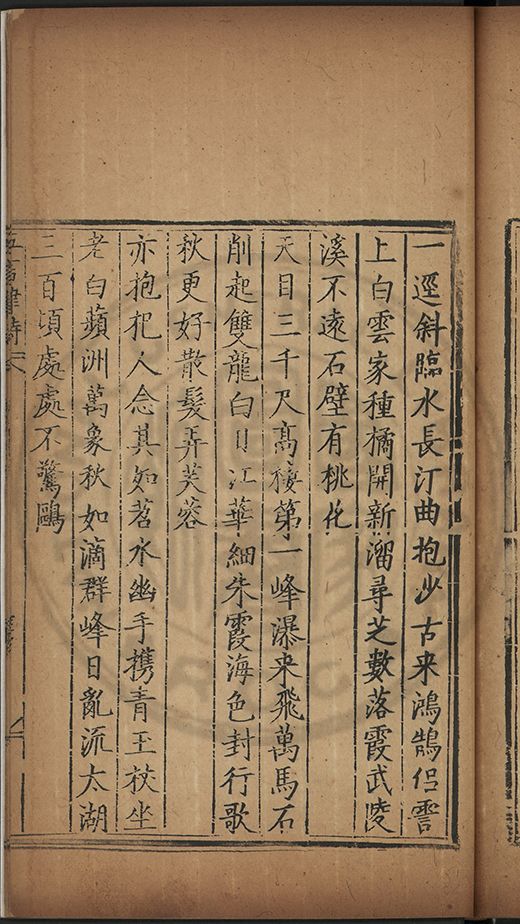 一逕斜臨水長汀曲抱沙古来鴻鵠侣雲
上白雲家種橘開新溜尋芝數落霞武陵
溪不遠石壁有桃花
天目三千尺高棲第一峰瀑来飛萬馬石
削起雙龍白日江華細朱霞海色封行歌
秋更好散髮弄芙蓉
亦抱杞人念其如苕水幽手攜青玉杖坐
老白蘋洲萬象秋如滴群峰日亂流太湖
三百頃處處不驚鷗
五言律詩